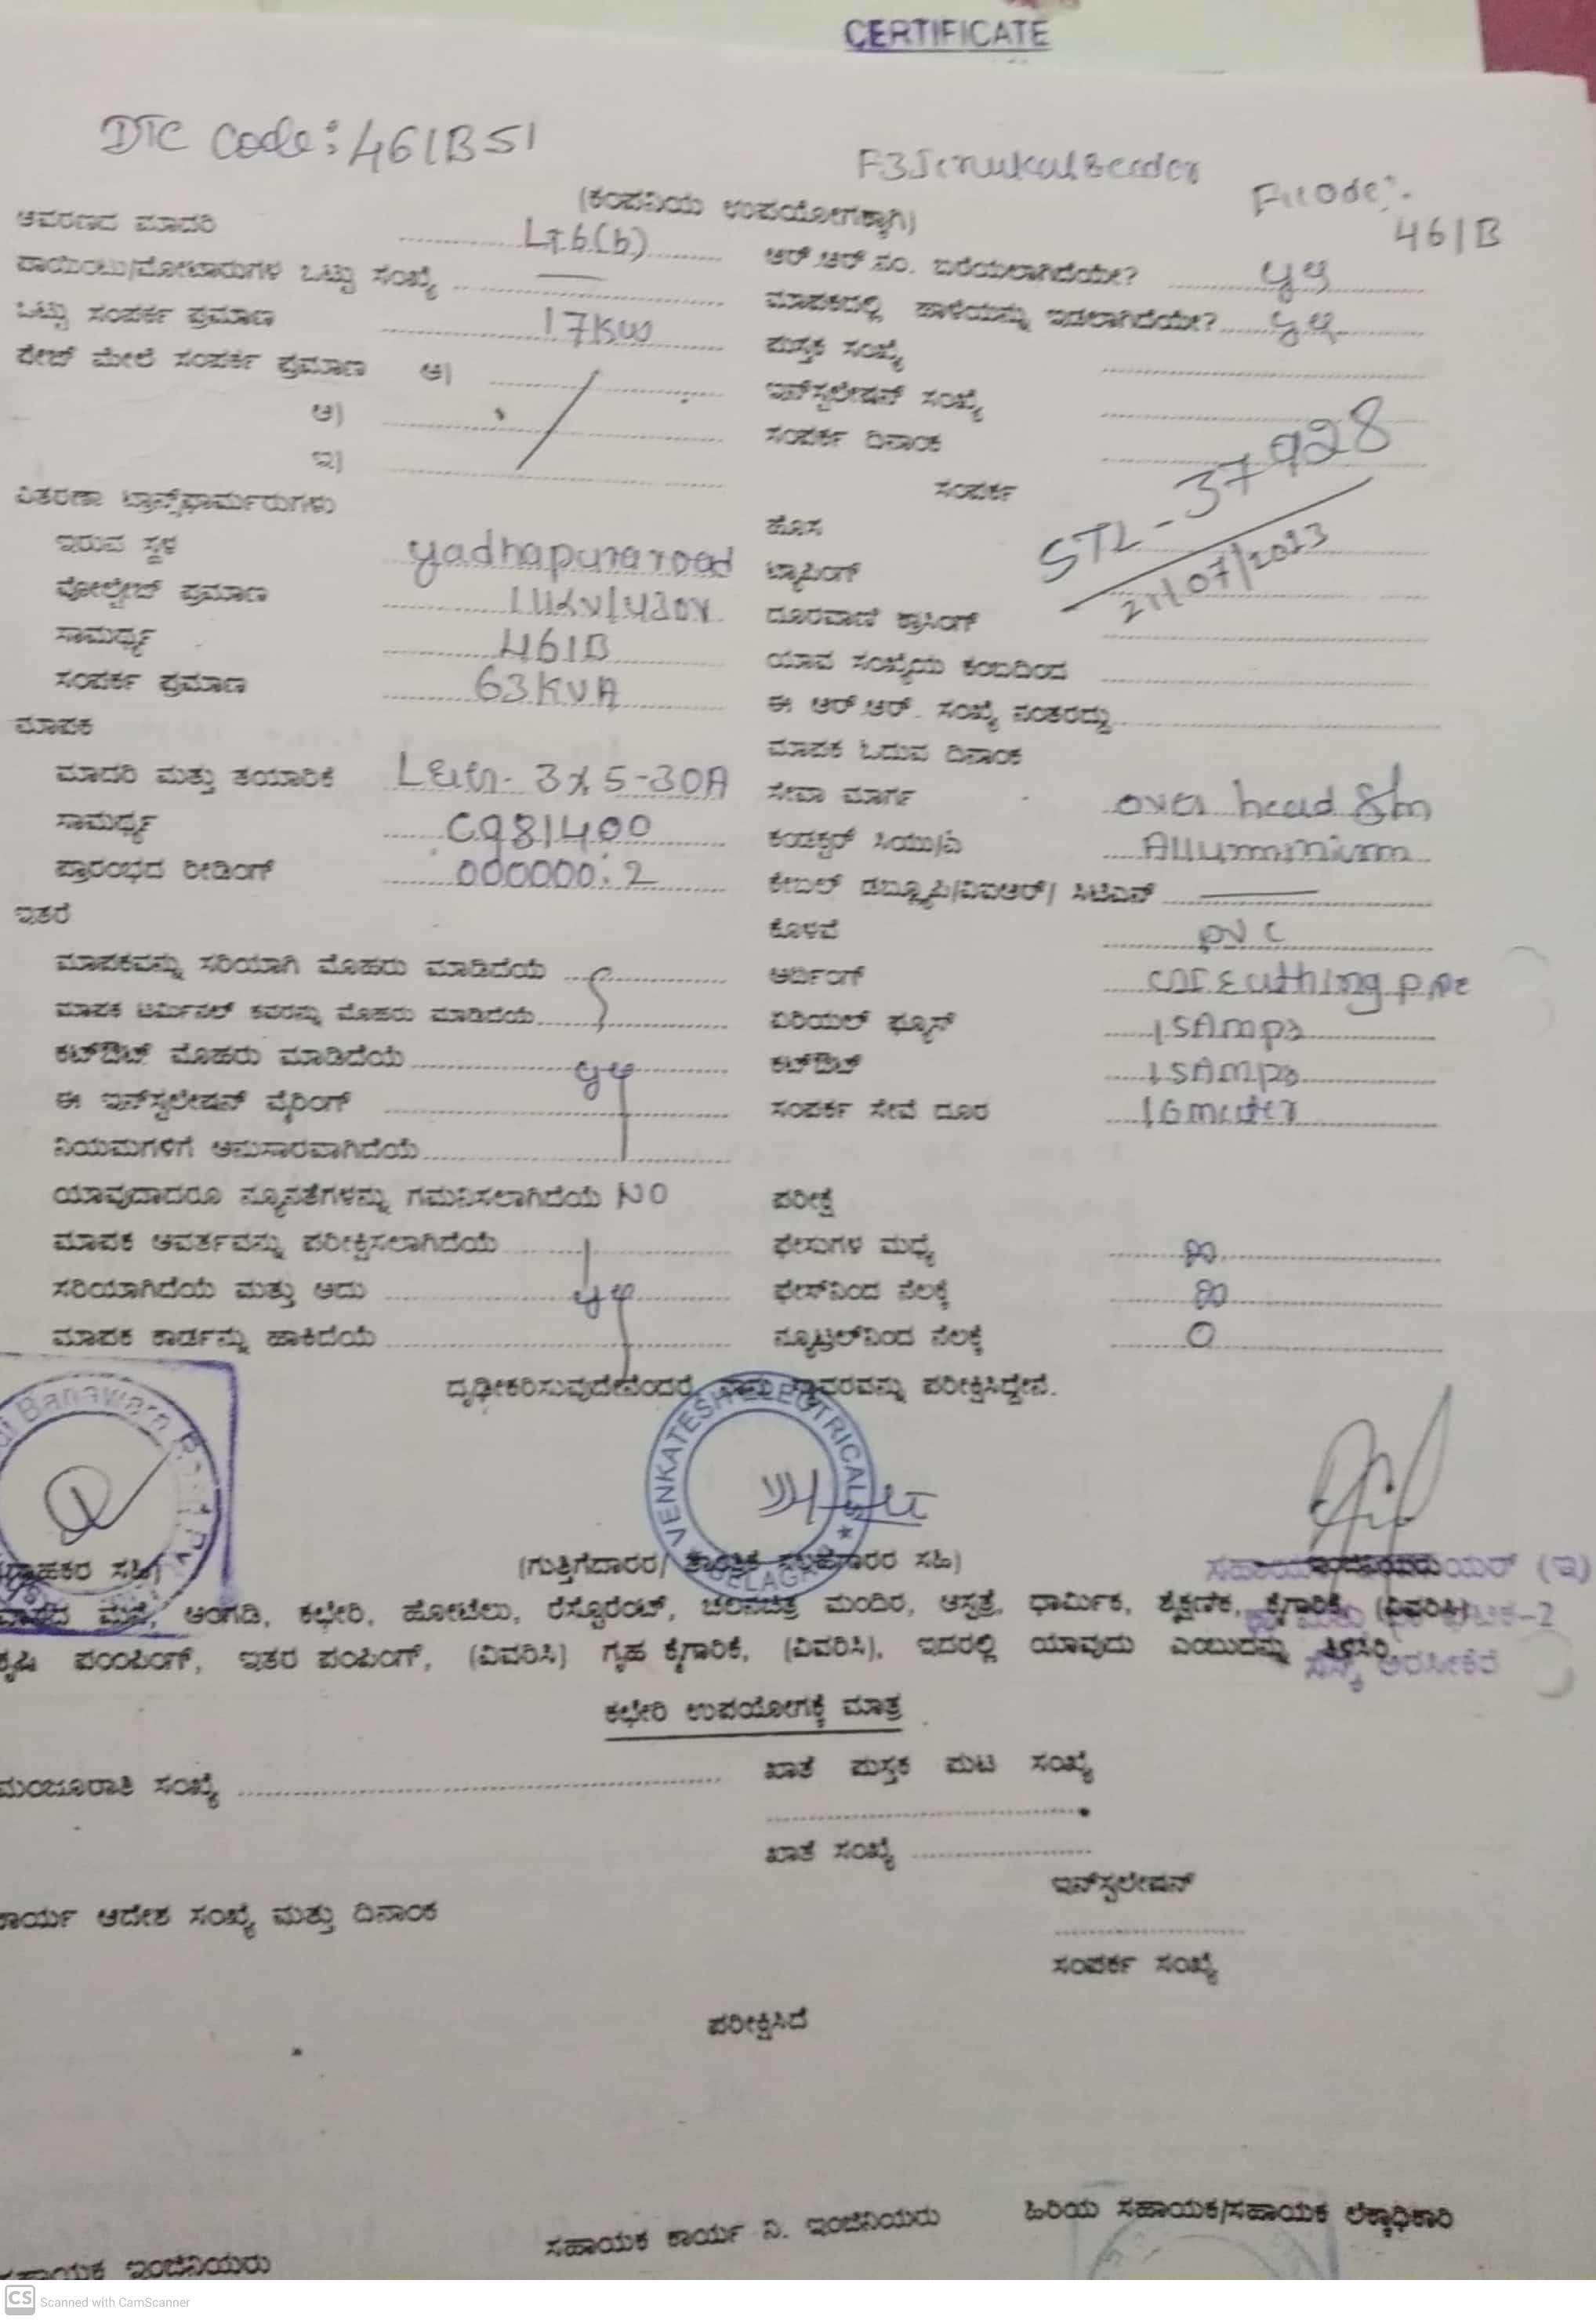 CERTIFICATE
DTC Code: 461B51
F3 Jenukal Beeder
Fcode:-
461B
(ಕಂಪನಿಯ ಉಪಯೋಗಕ್ಕಾಗಿ)
ಆವರಣದ ಮಾದರಿ LT6(b)
ಪಾಯಿಂಟು/ಮೋಟಾರುಗಳ ಒಟ್ಟು ಸಂಖ್ಯೆ —
ಒಟ್ಟು ಸಂಪರ್ಕ ಪ್ರಮಾಣ 17KW
ಪೇಜ್ ಮೇಲೆ ಸಂಪರ್ಕ ಪ್ರಮಾಣ ಅ)
ಆ)
ಇ)
ವಿತರಣಾ ಟ್ರಾನ್ಸ್‌ಫಾರ್ಮರುಗಳು
ಇರುವ ಸ್ಥಳ yadhapura road
ವೋಲ್ಟೇಜ್ ಪ್ರಮಾಣ
ಸಾಮರ್ಥ್ಯ 461B
ಸಂಪರ್ಕ ಪ್ರಮಾಣ 63KVA
ಮಾಪಕ
ಮಾದರಿ ಮತ್ತು ತಯಾರಿಕೆ 3x5-30A
ಸಾಮರ್ಥ್ಯ C981400
ಪ್ರಾರಂಭದ ರೀಡಿಂಗ್ 000000:2
ಇತರೆ
ಮಾಪಕವನ್ನು ಸರಿಯಾಗಿ ಮೊಹರು ಮಾಡಿದೆಯೆ
ಮಾಪಕ ಟರ್ಮಿನಲ್ ಕವರನ್ನು ಮೊಹರು ಮಾಡಿದೆಯೆ
ಕಟ್‌ಔಟ್ ಮೊಹರು ಮಾಡಿದೆಯೆ
ಈ ಇನ್‌ಸ್ಟಲೇಷನ್ ವೈರಿಂಗ್
ನಿಯಮಗಳಿಗೆ ಅನುಸಾರವಾಗಿದೆಯೆ
ಯಾವುದಾದರೂ ನ್ಯೂನತೆಗಳನ್ನು ಗಮನಿಸಲಾಗಿದೆಯೆ NO
ಮಾಪಕ ಆವರ್ತವನ್ನು ಪರೀಕ್ಷಿಸಲಾಗಿದೆಯೆ
ಸರಿಯಾಗಿದೆಯೆ ಮತ್ತು ಅದು
ಮಾಪಕ ಕಾರ್ಡನ್ನು ಹಾಕಿದೆಯೆ
ಆರ್.ಆರ್.ನಂ. ಬರೆಯಲಾಗಿದೆಯೇ?
ಮಾಪಕದಲ್ಲಿ ಹಾಳೆಯನ್ನು ಇಡಲಾಗಿದೆಯೇ?
ಪುಸ್ತಕ ಸಂಖ್ಯೆ
ಇನ್‌ಸ್ಟಲೇಷನ್ ಸಂಖ್ಯೆ
ಸಂಪರ್ಕ ದಿನಾಂಕ
ಸಂಪರ್ಕ
STL-37928
21/07/2023
ಹೊಸ
ಟ್ಯಾಪಿಂಗ್
ದೂರವಾಣಿ ಕ್ರಾಸಿಂಗ್
ಯಾವ ಸಂಖ್ಯೆಯ ಕಂಬದಿಂದ
ಈ ಆರ್.ಆರ್. ಸಂಖ್ಯೆ ನಂತರದ್ದು
ಮಾಪಕ ಓದುವ ದಿನಾಂಕ
ಸೇವಾ ಮಾರ್ಗ over head
ಕಂಡಕ್ಟರ್ ಸಿಯು/ಎ Alluminium
ಕೇಬಲ್ ಡಬ್ಲ್ಯೂಪಿ/ವಿಐಆರ್/ ಸಿಟಿಎಸ್ —
ಕೊಳವೆ PVC
ಅರ್ಥಿಂಗ್ Earthing pipe
ಏರಿಯಲ್ ಫ್ಯೂಸ್ 15Amps
ಕಟ್‌ಔಟ್ 15Amps
ಸಂಪರ್ಕ ಸೇವೆ ದೂರ 16meter
ಪರೀಕ್ಷೆ
ಫೇಸುಗಳ ಮಧ್ಯೆ
ಫೇಸ್‌ನಿಂದ ನೆಲಕ್ಕೆ
ನ್ಯೂಟ್ರಲ್‌ನಿಂದ ನೆಲಕ್ಕೆ 0
ದೃಢೀಕರಿಸುವುದೇನೆಂದರೆ, ನಾನು ಸ್ಥಾವರವನ್ನು ಪರೀಕ್ಷಿಸಿದ್ದೇನೆ.
VENKATESH ELECTRICALS
(ಗುತ್ತಿಗೆದಾರರ/ ತಾಂತ್ರಿಕ ಸಲಹೆಗಾರರ ಸಹಿ)
ಮನೆ, ಅಂಗಡಿ, ಕಛೇರಿ, ಹೋಟೆಲು, ರೆಸ್ಟೊರೆಂಟ್, ಚಲನಚಿತ್ರ ಮಂದಿರ, ಆಸ್ಪತ್ರೆ, ಧಾರ್ಮಿಕ, ಶೈಕ್ಷಣಿಕ, ಕೈಗಾರಿಕೆ, (ವಿವರಿಸಿ)
ಕೃಷಿ ಪಂಪಿಂಗ್, ಇತರ ಪಂಪಿಂಗ್, (ವಿವರಿಸಿ) ಗೃಹ ಕೈಗಾರಿಕೆ, (ವಿವರಿಸಿ), ಇದರಲ್ಲಿ ಯಾವುದು ಎಂಬುದನ್ನು ತಿಳಿಸಿರಿ
ಕಛೇರಿ ಉಪಯೋಗಕ್ಕೆ ಮಾತ್ರ
ಮಂಜೂರಾತಿ ಸಂಖ್ಯೆ
ಖಾತೆ ಪುಸ್ತಕ ಪುಟ ಸಂಖ್ಯೆ
ಖಾತೆ ಸಂಖ್ಯೆ
ಇನ್‌ಸ್ಟಲೇಷನ್
ಕಾರ್ಯ ಆದೇಶ ಸಂಖ್ಯೆ ಮತ್ತು ದಿನಾಂಕ
ಸಂಪರ್ಕ ಸಂಖ್ಯೆ
ಪರೀಕ್ಷಿಸಿದೆ
ಹಿರಿಯ ಸಹಾಯಕ/ಸಹಾಯಕ ಲೆಕ್ಕಾಧಿಕಾರಿ
ಸಹಾಯಕ ಕಾರ್ಯ ನಿ. ಇಂಜಿನಿಯರು
ಸಹಾಯಕ ಇಂಜಿನಿಯರು
CS Scanned with CamScanner